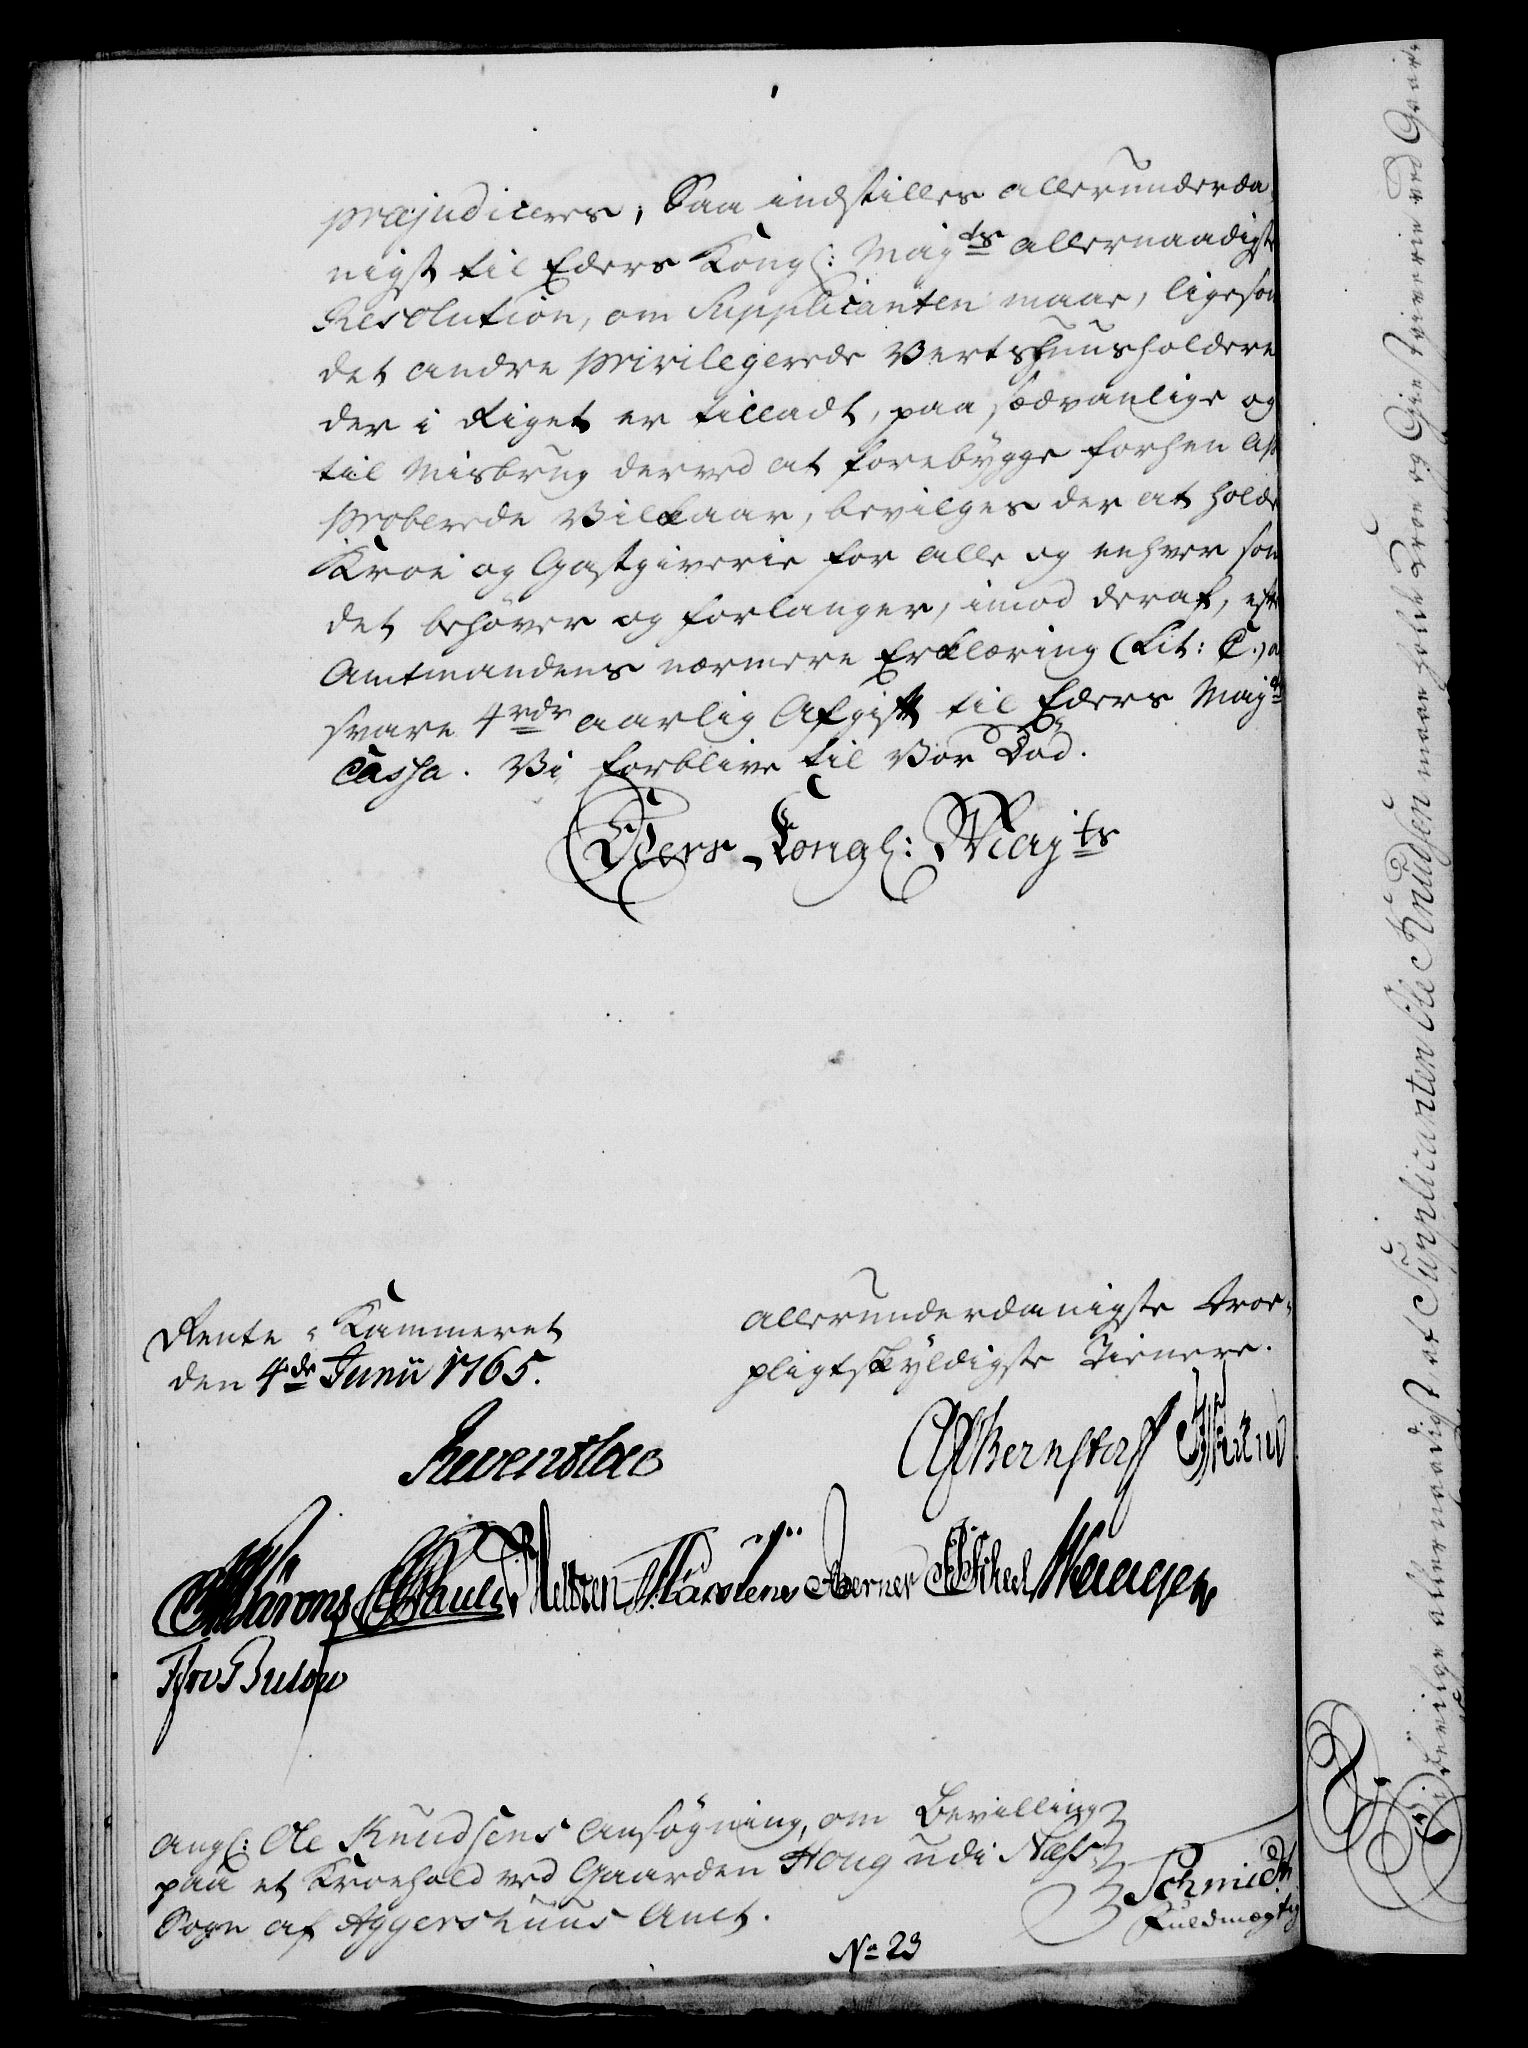 præjudiceres, Saa indstilles allerunderdā¬
nigst til Eders Kongl: Maj.ts allernaadigste
Resolution, om Supplicanten maae, ligesom
det andre privilegerede Vertshuusholdere
der i Riget er tilladt, paa sædvanlige og
til Misbrug derved at forebygge forhen ap
proberede Vilkaar, bevilges der at holde
Kroe og Gastgiverie for alle og enhver som
det behøver og forlanger, imod deraf, efter
Amtmandens nærmere Erklæring (Lit: C.) at
svare 4 rdr aarlig Afgift til Eders Maj.ts
Cassa. Vi forblive til Vor Død.
Eders Kongl: Maj.ts
Rente-Kammeret
den 4de Junii 1765.
allerunderdanigste troe-
pligtskyldigste Tienere.
Reventlau
Bernstorff
Pauli
Bulow
angl: Ole Knudsens Ansøgning, om Bevilling
paa et Kroehold ved Gaarden Houg udi Næss
Sogn af Aggershuus Amt.
Schmidt
Fuldmægtig
No 23
Vi bevilge allernaadigst, at Supplicanten Ole Knudsen maae holde Kroe og Giestgiverie ved Gaar-